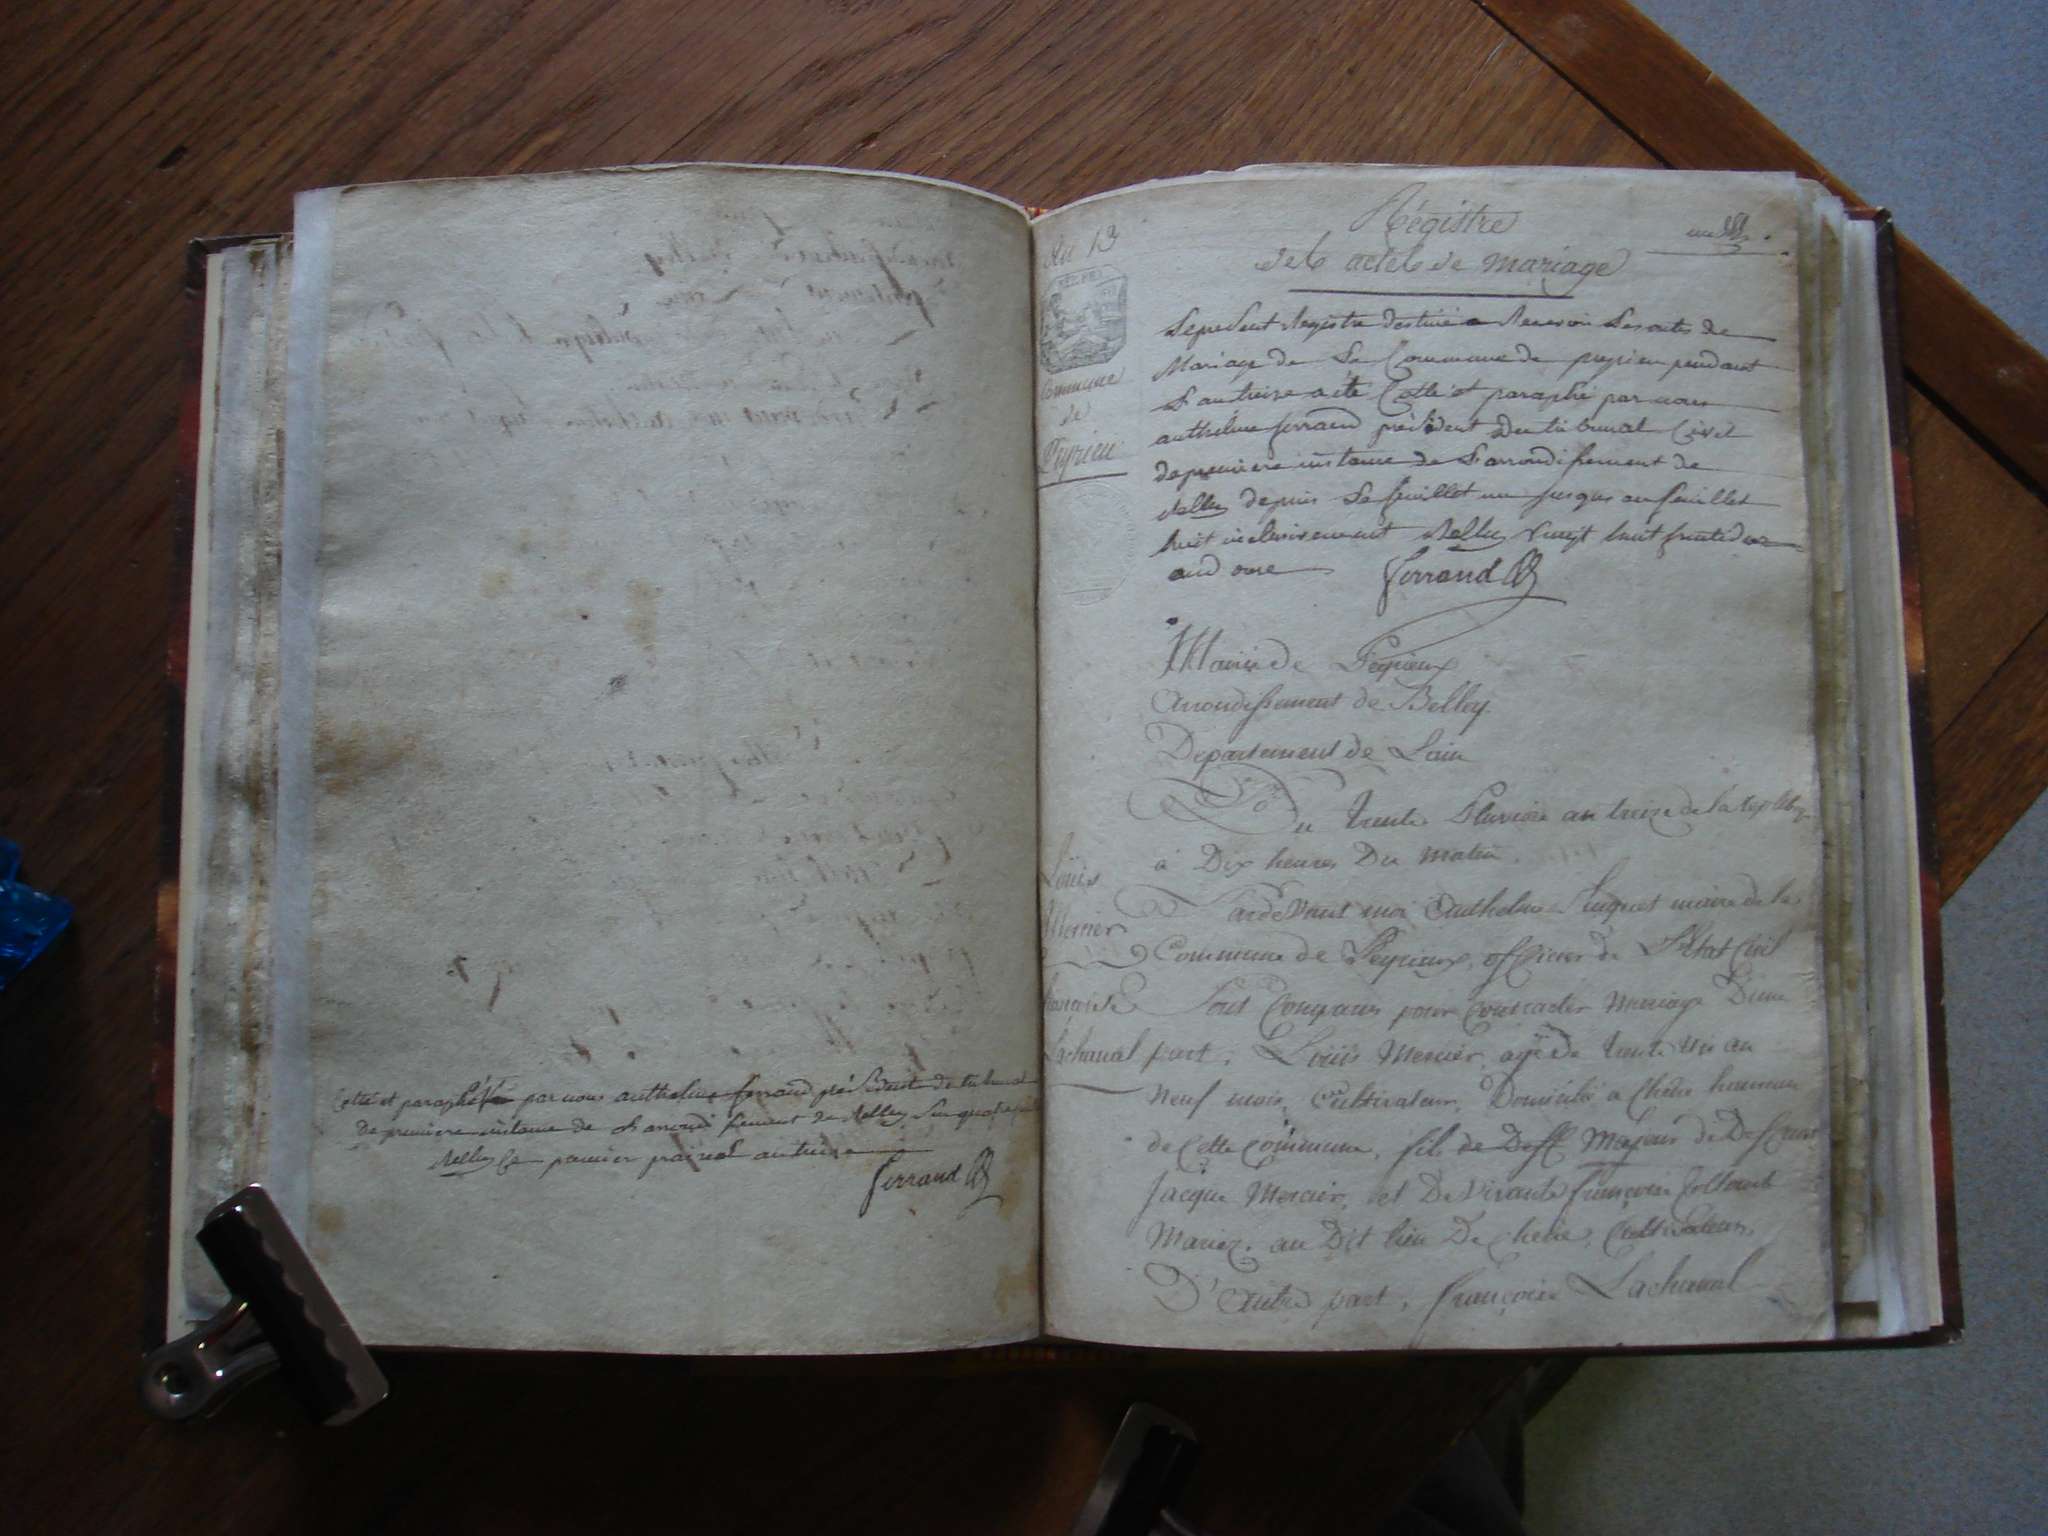 Cotté et paraphé par nous anthelme ferrand président du tribunal
De premiere instance de L'arrondissement de Belley Sur quatre
Belley Ce premier prairial an treize
ferrand
An 13
Commune
de
Peyrieu
un
Régistre
des actes de mariage
Le present Registre destiné a Recevoir Les actes de
Mariage de La Commune de peyrieu pendant
L'an treize a été Cotté et paraphé par nous
anthelme ferrand président Du tribunal Civil
de premiere instance de L'arrondissement de
Belley depuis Le feuillet un jusqu'au feuillet
huit inclusivement Belley vingt huit fructidor
an douze
ferrand
Mairie de Peyrieux
Arrondissement de Belley
Departement de Lain
Du trente Pluviose an treize de la
à Dix heures Du matin.
Louis
Mercier
&
françoise
Lachanal
Pardevant moi Anthelme maire de la
Commune de Peyrieux, officier de L'Etat Civil
Sont Comparus pour Contracter Mariage D'une
part, Louis Mercier, agé de trente
neuf mois, Cultivateur, Domicilié a
de Cette Commune, fils de Majeur de Defeunt
Jacque Mercier, et De Vivante françoise
Mariez, au Dit lieu De Cultivateurs,
D'Autre part, françoise Lachanal